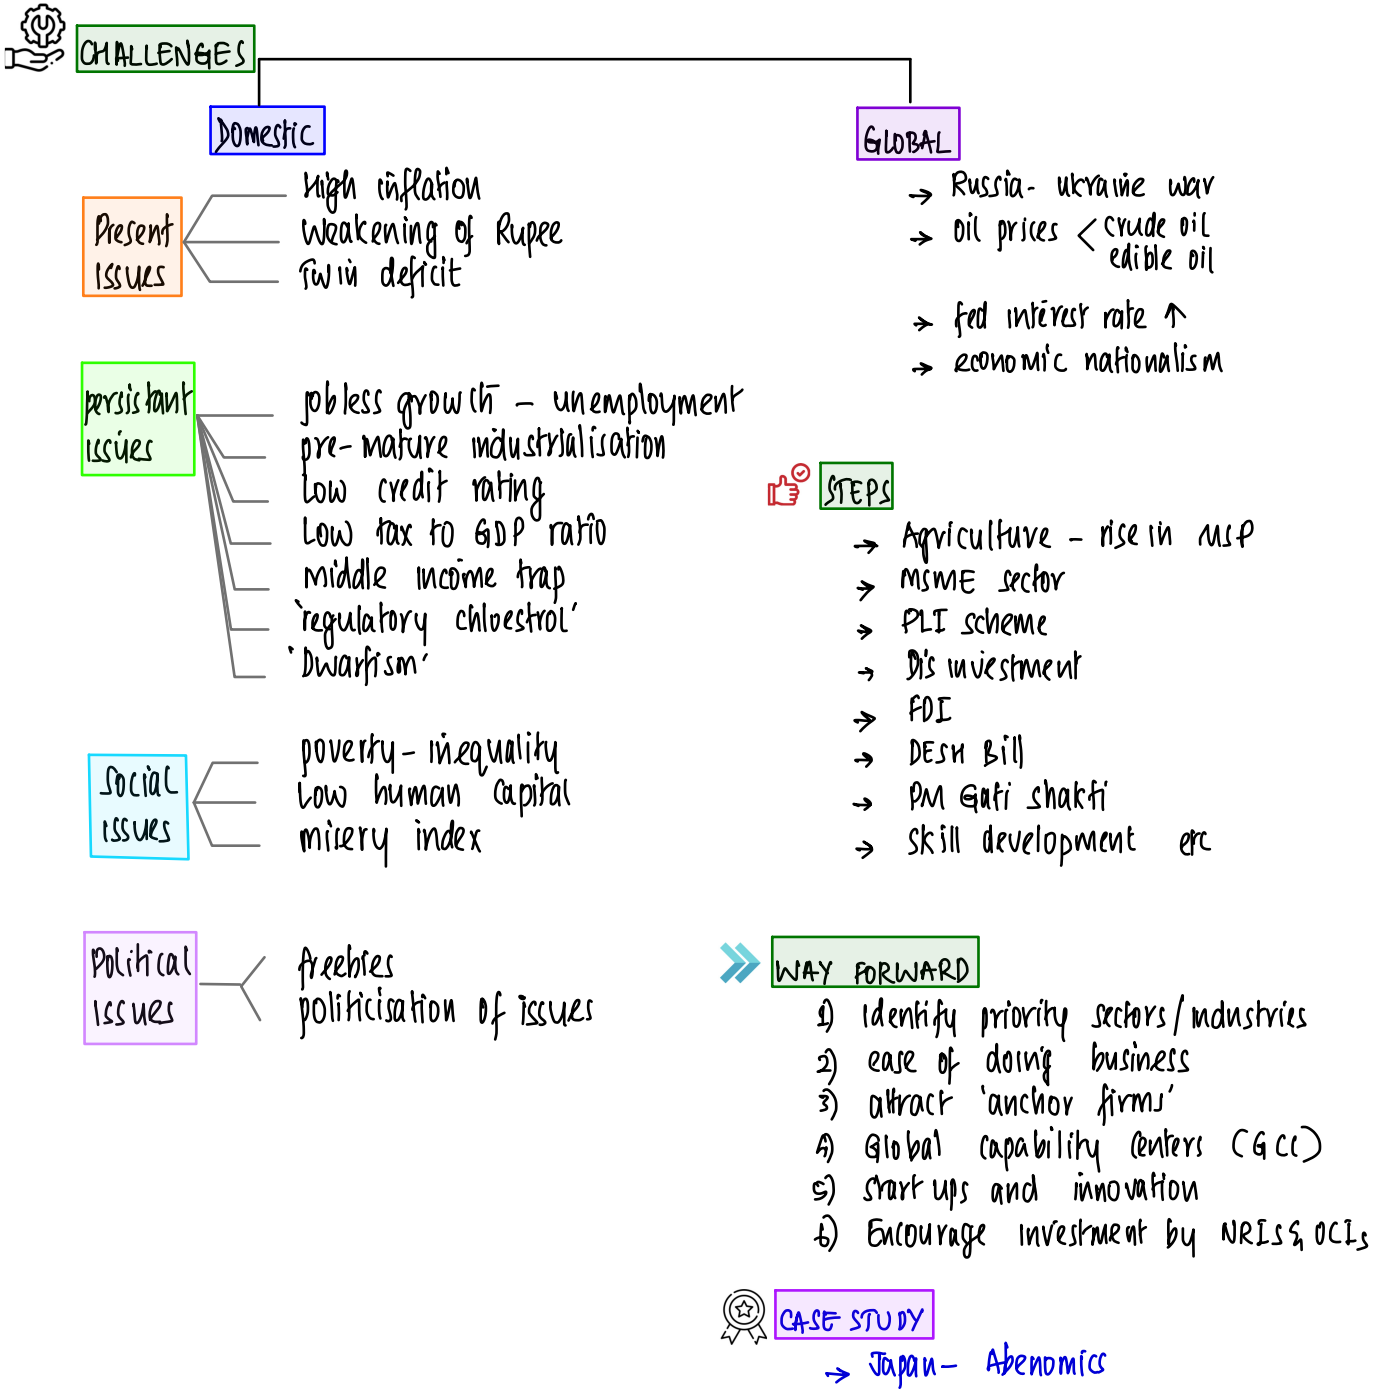 CHALLENGES
Domestic
Present
issues
High inflation
Weakening of Rupee
Twin deficit
persistant
issues
jobless growth - unemployment
pre-mature industrialisation
Low credit rating
Low tax to GDP ratio
middle income trap
'regulatory chloestrol'
'Dwarfism'
Social
issues
poverty - inequality
Low human capital
misery index
Political
issues
freebies
politicisation of issues
GLOBAL
→ Russia - ukraine war
→ oil prices < crude oil
edible oil
→ fed interest rate ↑
→ economic nationalism
STEPS
→ Agriculture - rise in MSP
→ MSME sector
→ PLI scheme
→ Disinvestment
→ FDI
→ DESH Bill
→ PM Gati shakti
→ skill development etc
WAY FORWARD
1) Identify priority sectors/industries
2) ease of doing business
3) attract 'anchor firms'
4) Global capability centers (GCC)
5) start ups and innovation
6) Encourage investment by NRIs & OCIs
CASE STUDY
→ Japan - Abenomics